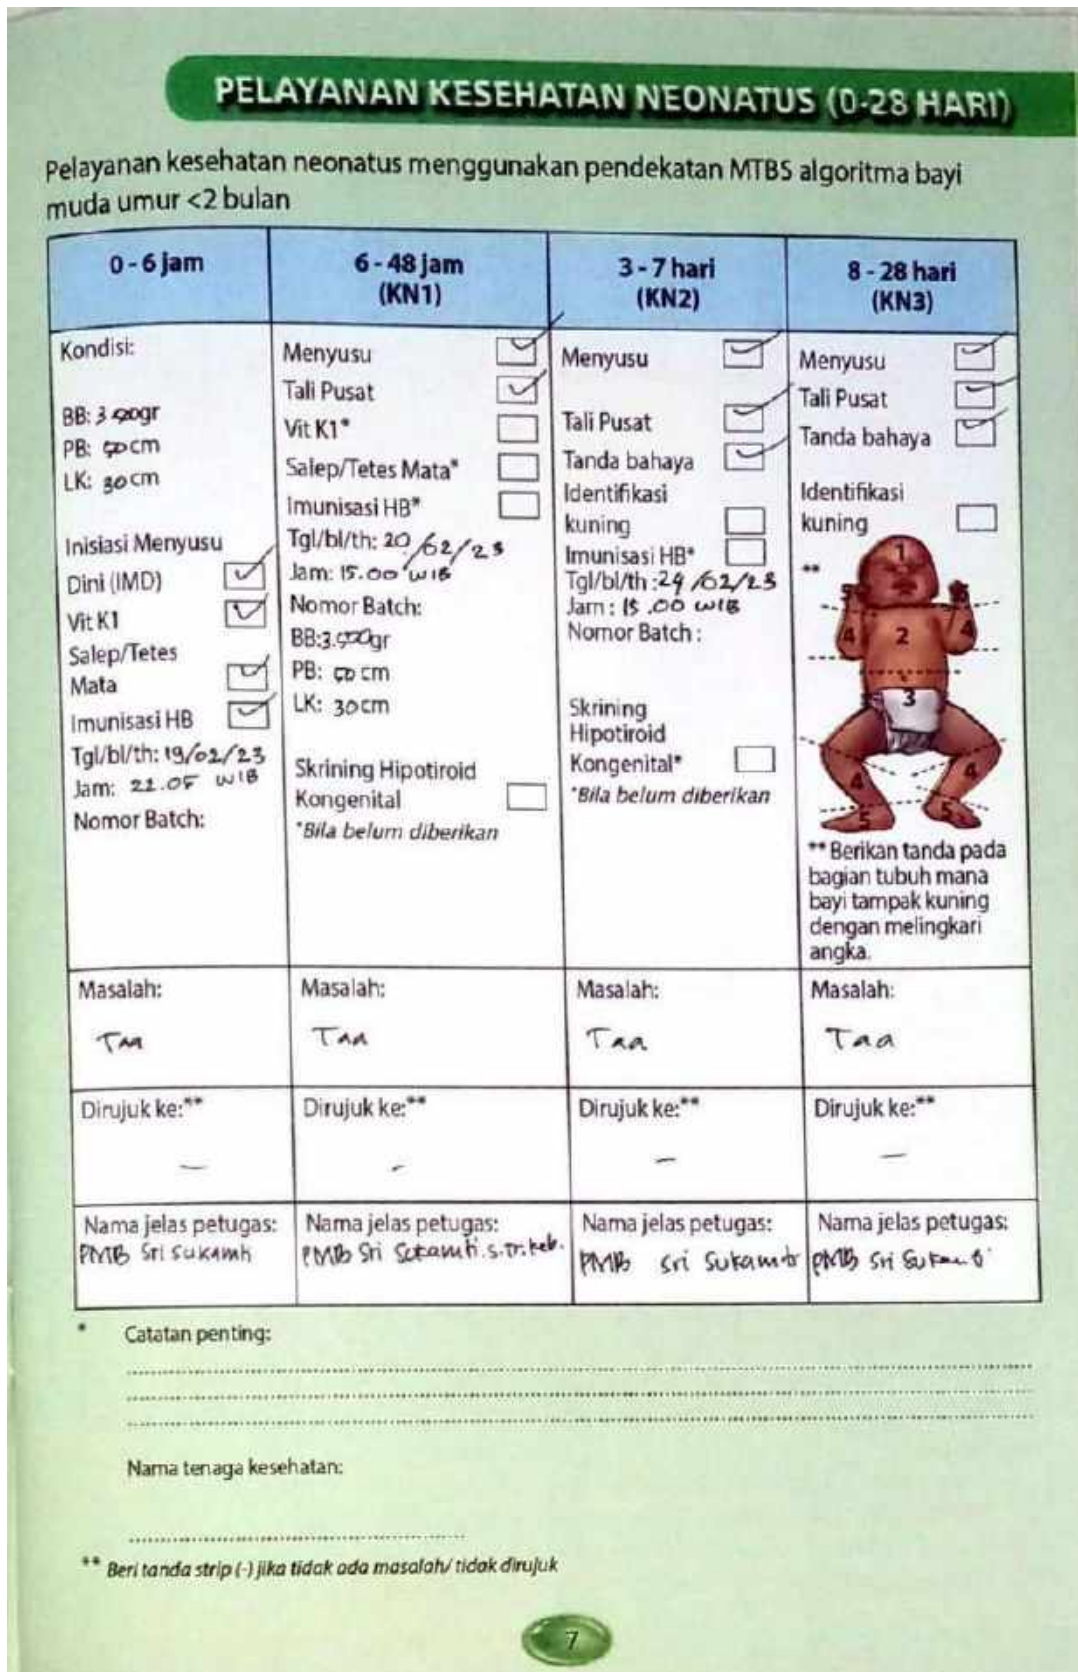 PELAYANAN KESEHATAN NEONATUS (0-28 HARI)
Pelayanan kesehatan neonatus menggunakan pendekatan MTBS algoritma bayi
muda umur <2 bulan
0 - 6 jam
Kondisi:
BB: gr
PB: 50 cm
LK: 30 cm
Inisiasi Menyusu
Dini (IMD)
Vit K1
Salep/Tetes
Mata
Imunisasi HB
Tgl/bl/th: 19/02/23
Jam: 22.05 WIB
Nomor Batch:
6 - 48 jam
(KN1)
Menyusu
Tali Pusat
Vit K1*
Salep/Tetes Mata*
Imunisasi HB*
Tgl/bl/th: 20/02/23
Jam: 15.00 WIB
Nomor Batch:
BB: gr
PB: 50 cm
LK: 30cm
Skrining Hipotiroid
Kongenital
*Bila belum diberikan
3 - 7 hari
(KN2)
Menyusu
Tali Pusat
Tanda bahaya
Identifikasi
kuning
Imunisasi HB*
Tgl/bl/th: /02/23
Jam: 15.00 WIB
Nomor Batch:
Skrining
Hipotiroid
Kongenital*
*Bila belum diberikan
8 - 28 hari
(KN3)
Menyusu
Tali Pusat
Tanda bahaya
Identifikasi
kuning
**
1
5 5
4 2 4
3
4 4
5 5
** Berikan tanda pada
bagian tubuh mana
bayi tampak kuning
dengan melingkari
angka.
Masalah: Masalah: Masalah: Masalah:
Taa Taa Taa Taa
Dirujuk ke:** Dirujuk ke:** Dirujuk ke:** Dirujuk ke:**
- - - -
Nama jelas petugas: Nama jelas petugas: Nama jelas petugas: Nama jelas petugas:
PMB Sri Sukamti PMB Sri Sukamti.S.Tr.Keb. PMB Sri Sukamti PMB Sri Sukamti
* Catatan penting:
Nama tenaga kesehatan:
** Beri tanda strip (-) jika tidak ada masalah/ tidak dirujuk
7